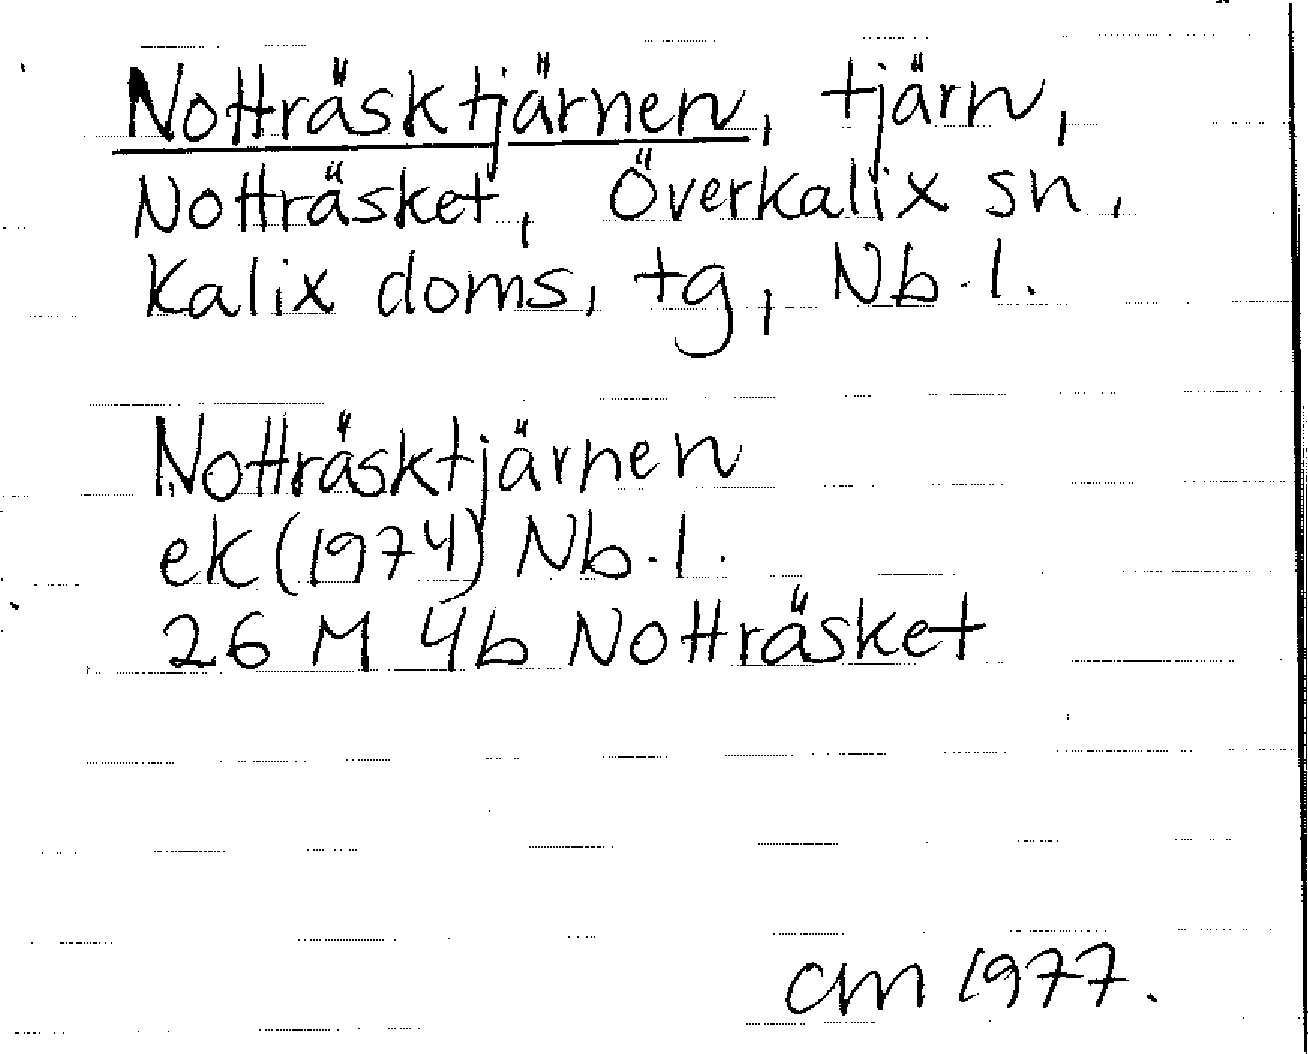 Notträsktjärnen, tjärn,
Notträsket, Överkalix sn,
Kalix doms, tg, Nb.l.
Notträsktjärnen
ek (1974) Nb.l.
26 M 4b Notträsket
CM 1977.